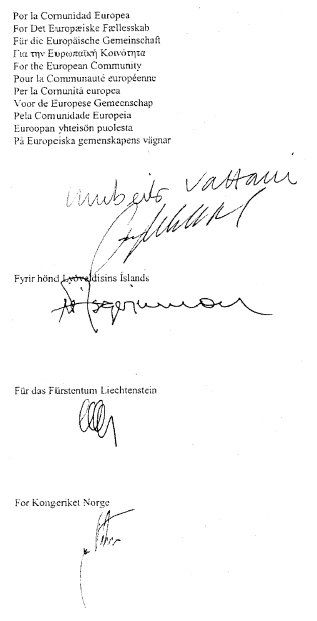 Por la Comunidad Europea
For Det Europæiske Fællesskab
Für die Europäische Gemeinschaft
Για την Ευρωπαϊκή Κοινότητα
For the European Community
Pour la Communauté européenne
Per la Comunità europea
Voor de Europese Gemeenschap
Pela Comunidade Europeia
Euroopan yhteisön puolesta
På Europeiska gemenskapens vägnar
Umberto Vattani
Fyrir hönd Lýðveldisins Íslands
Für das Fürstentum Liechtenstein
For Kongeriket Norge